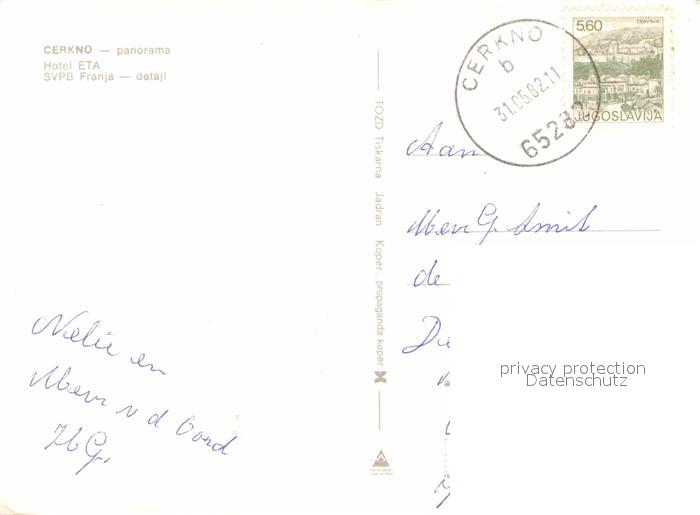 CERKNO — panorama
Hotel ETA
SVPB Franja — detajl
TOZD Tiskarna Jadran Koper, propaganda koper
CERKNO
b
31.05.82.11
6528
5,60
TRAVNIK
JUGOSLAVIJA
Aan
Mevr G. Smit
de
privacy protection
Datenschutz
Nelie en
Mevr v d Oord